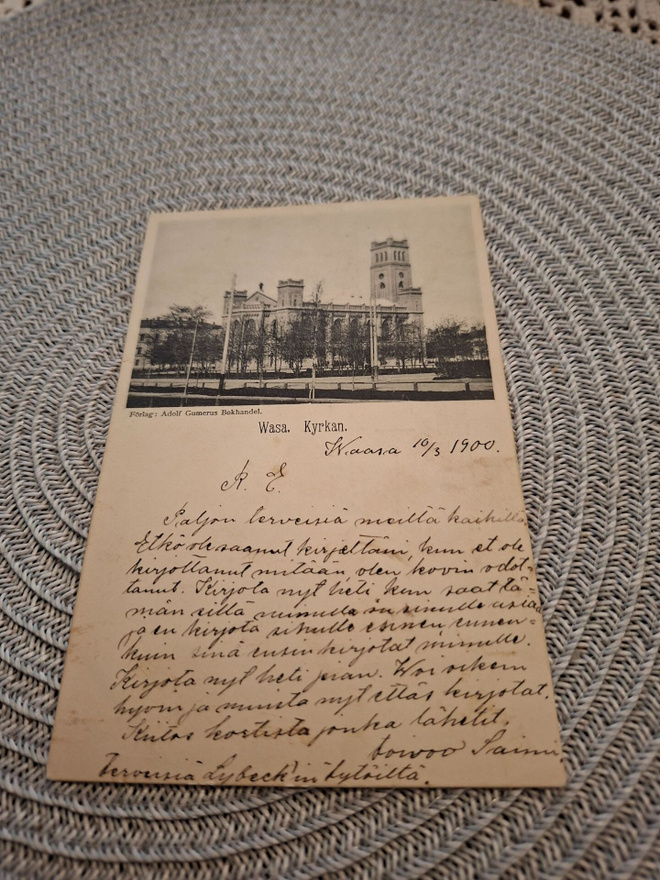 Förlag: Adolf Gumerus Bokhandel.
Wasa. Kyrkan.
Waasa 10/3 1900.
R. E.
Paljon terveisiä meiltä kaikilta
Etkö ole saanut kirjettäni, kun et ole
kirjottanut mitään olen kovin odot-
tanut. Kirjota nyt heti kun saat tä-
män sillä minulla on sinulle asiaa
ja en kirjota sinulle ennen ennen-
kuin sinä ensin kirjotat minulle.
Kirjota nyt heti pian. Woi oikein
hyvin ja muista nyt ettäs kirjotat.
Kiitos kortista jonka lähetit.
toivoo Saimi
Terveisiä Lybeck'in tytöiltä.